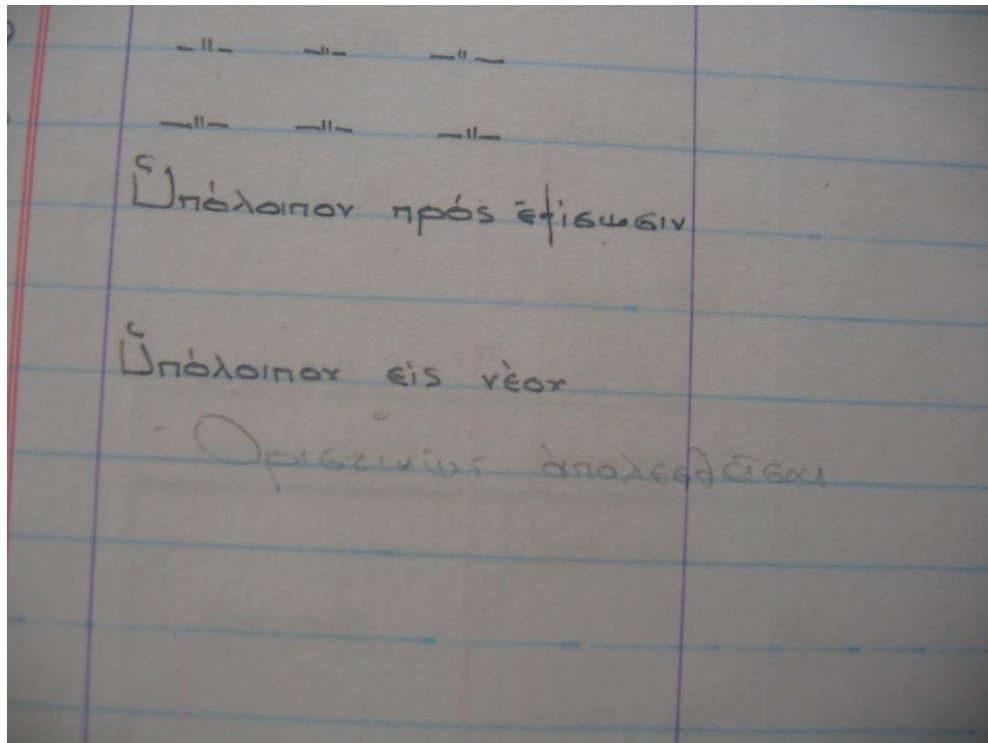 —"— —"— —"—
—"— —"— —"—
Ὑπόλοιπον πρός ἐξίσωσιν
Ὑπόλοιπον εἰς νέον
Ὁριστικῶς ἀπολεσθεῖσαι